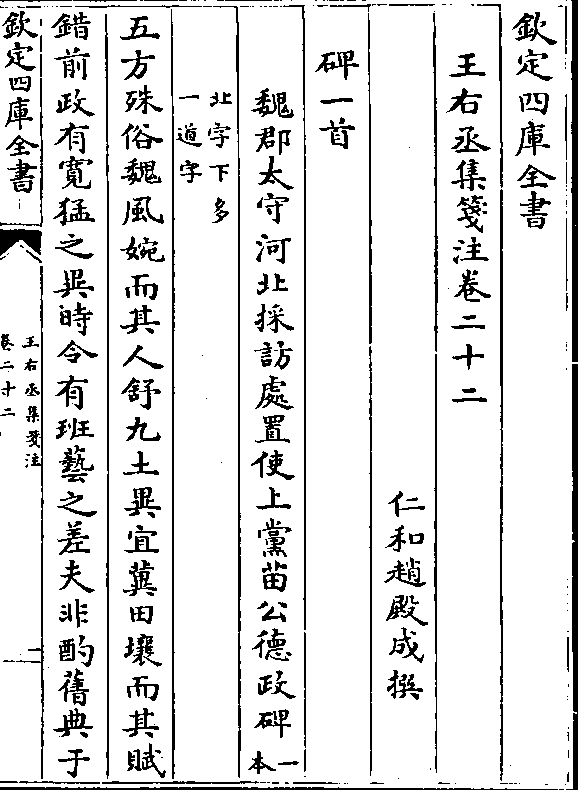 欽定四庫全書
王右丞集箋注卷二十二
仁和趙殿成撰
碑一首
魏郡太守河北採訪處置使上黨苗公德政碑一本
北字下多
一道字
五方殊俗魏風婉而其人舒九土異宜冀田壤而其賦
錯前政有寬猛之異時令有班藝之差夫非酌舊典于
欽定四庫全書
王右丞集箋注
卷二十二
一